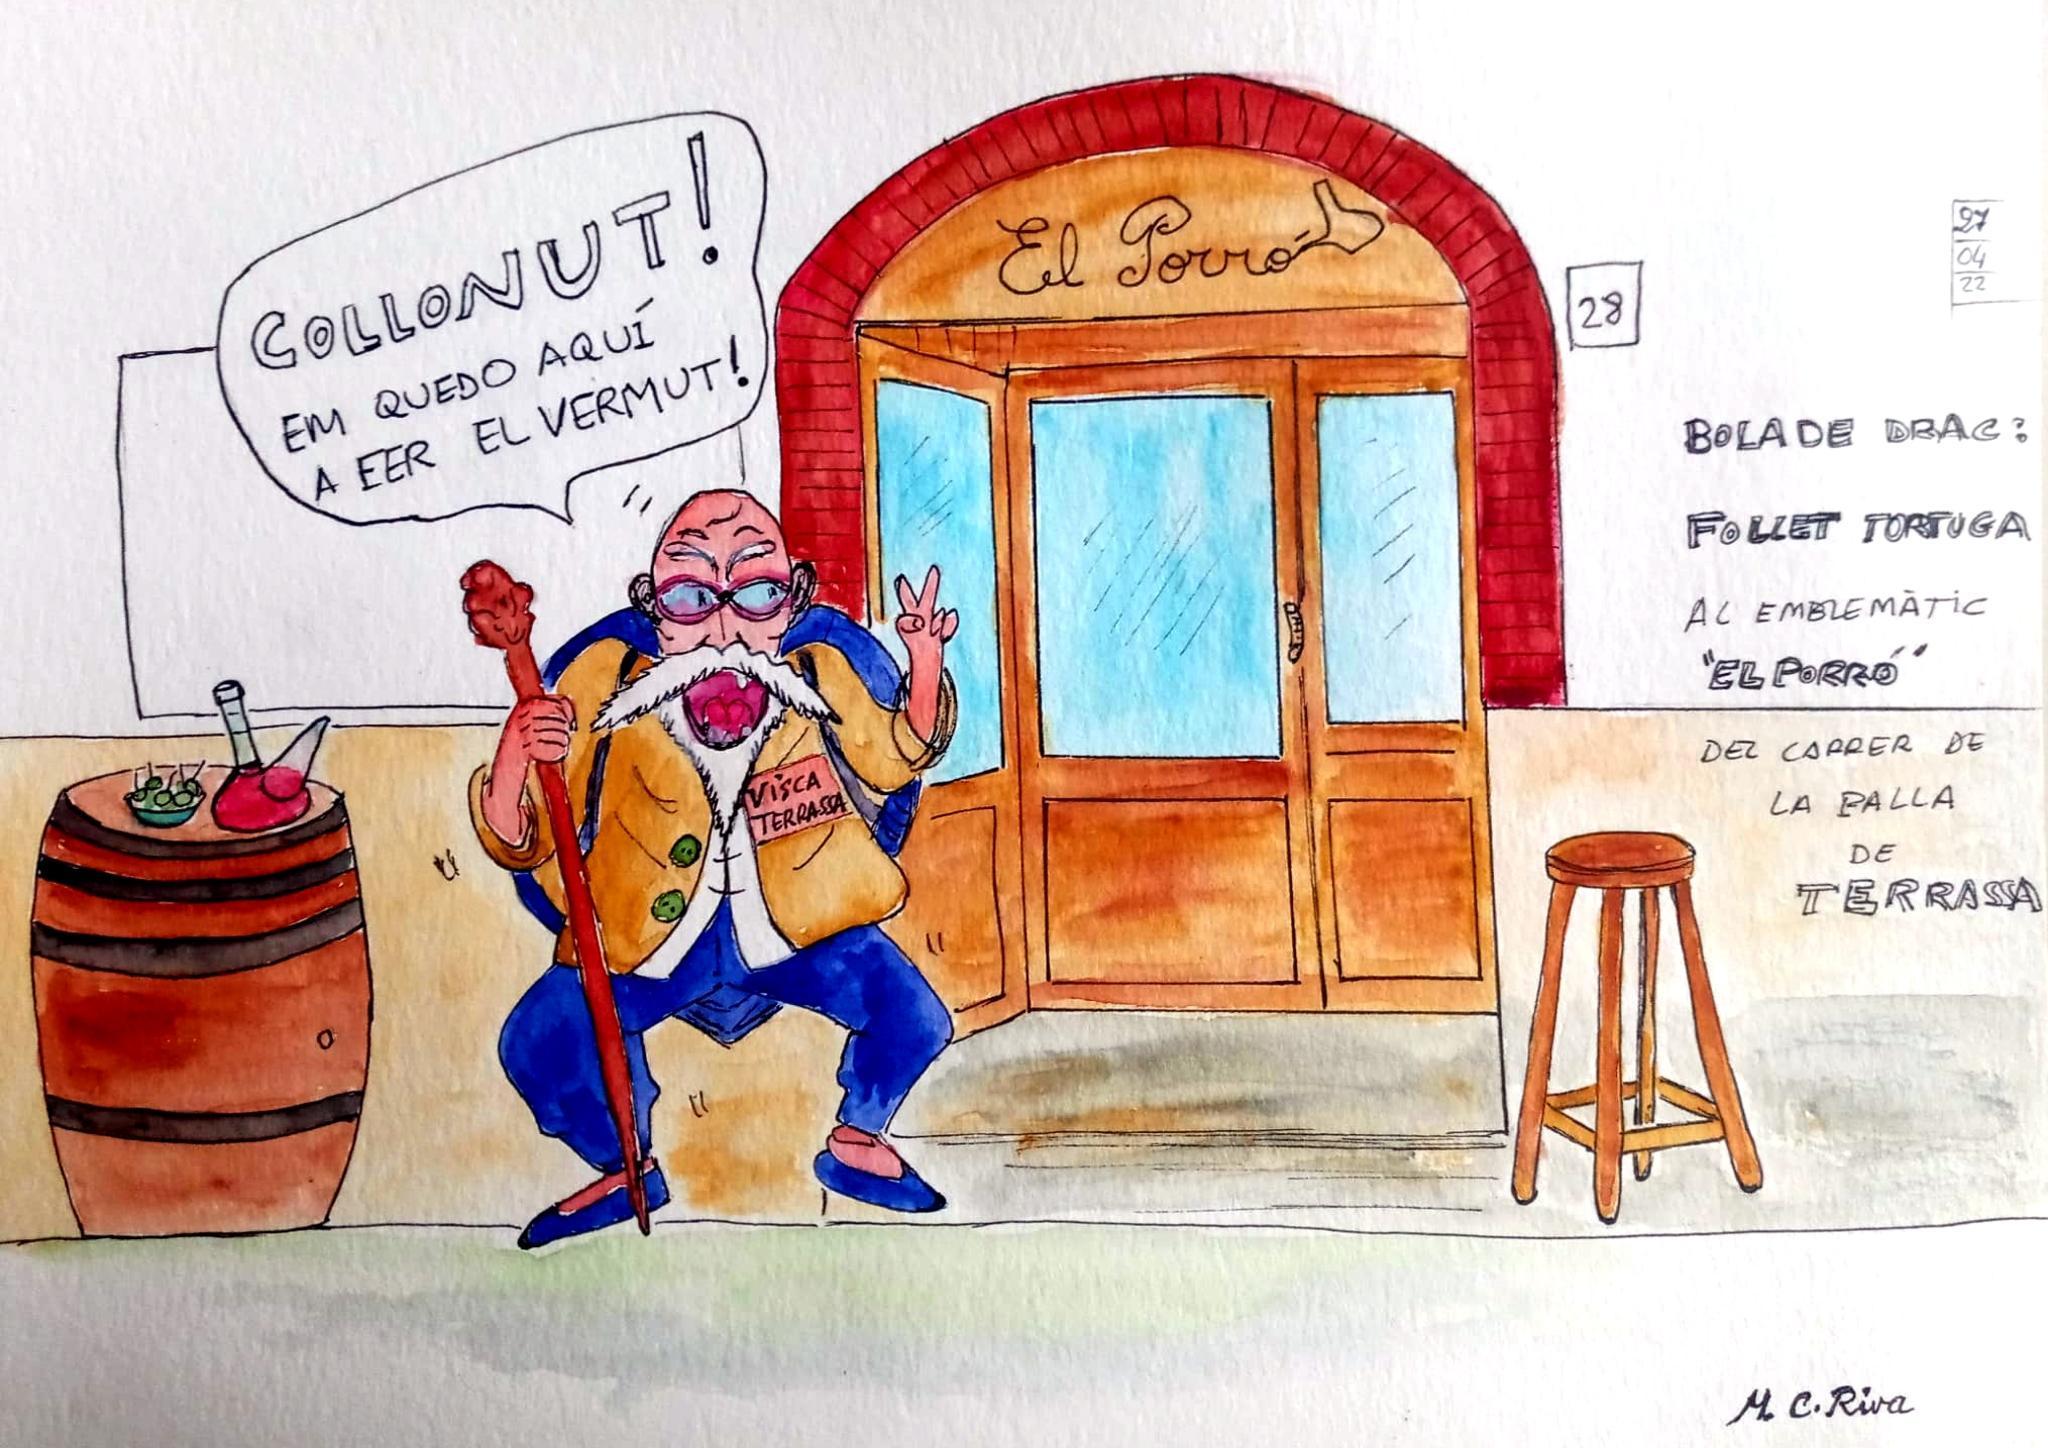 COLLONUT!
EM QUEDO AQUÍ
A FER EL VERMUT!
El Porró
28
27
04
22
BOLA DE DRAC:
FOLLET TORTUGA
AL EMBLEMÀTIC
"EL PORRÓ"
DEL CARRER DE
LA PALLA
DE
TERRASSA
VISCA
TERRASSA
M. C. Riva